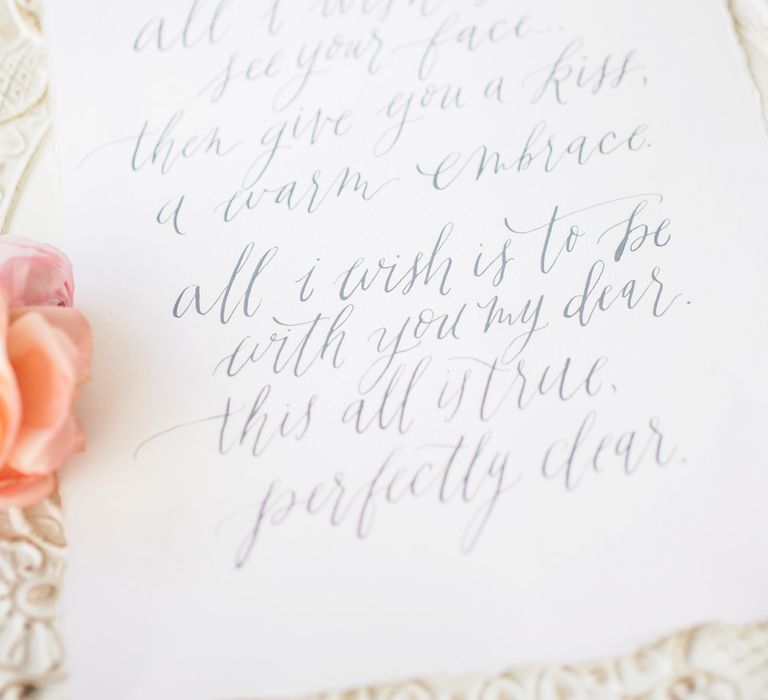 all i wish
see your face...
then give you a kiss,
a warm embrace.
all i wish is to be
with you my dear.
this all is true,
perfectly clear.